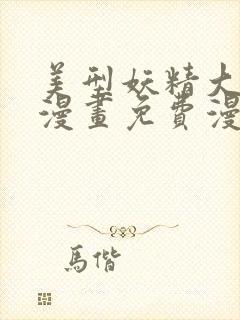 美型妖精大
漫畫免費漫
馬偕